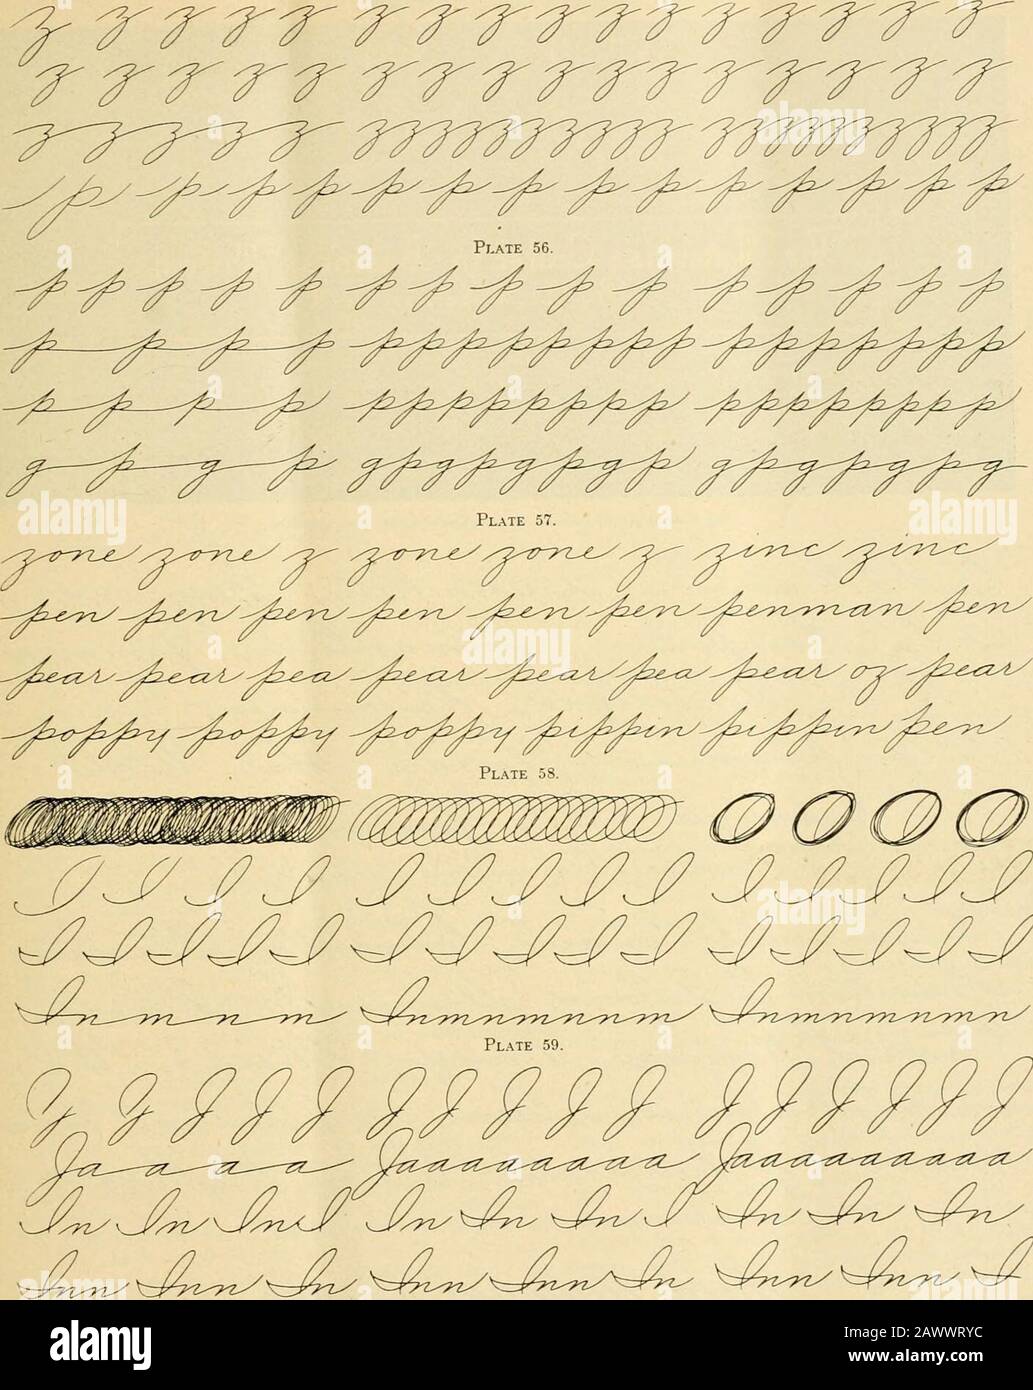 z z z z z z z z z z z z z z z z
z z z z z z z z z z z z z z z z
z z z z z zzzzzzzzzz zzzzzzzzz
p p p p p p p p p p p p p p p
PLATE 56.
p p p p p p p p p p p p p p p
p p p p ppppppppp pppppppp
p p p p pppppppp pppppppp
g p g p gpgpgpgp gpgpgpg
PLATE 57.
zone zone z zone zone z zinc zinc
pen pen pen pen pen pen penman pen
pear pear pea pear pear pea pear oz pear
poppy poppy poppy pippin pippin pen
PLATE 58.
I I I I I I I I I I I I I I
I I I I I I I I I I I I I I I
In m n m Inmnmnnm Inmnmnmn
PLATE 59.
J J J J J J J J J J J J J J J J
Ja a a a Jaaaaaaaaa Jaaaaaaaaa
In In Ind In In In I In In In
Inn Inn In Inn Inn In Inn Inn I
alamy
Image ID: 2AWWRYC
www.alamy.com